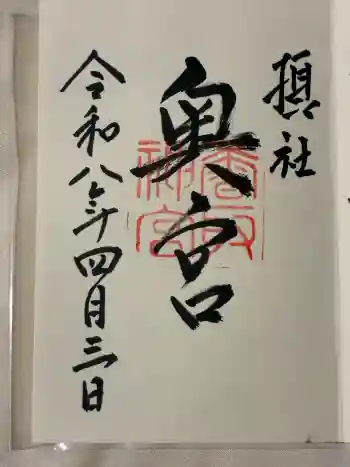 摂社
奥宮
香取
神宮
令和八年四月三日